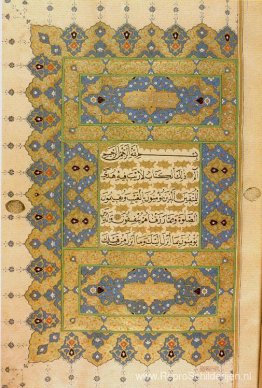 بسم الله الرحمن الرحيم
الم ذلك الكتاب لا ريب فيه هدى
للمتقين الذين يؤمنون بالغيب ويقيمون
الصلوة ومما رزقناهم ينفقون والذين
يؤمنون بما انزل اليك وما انزل من قبلك
www.ReproSchilderijen.nl